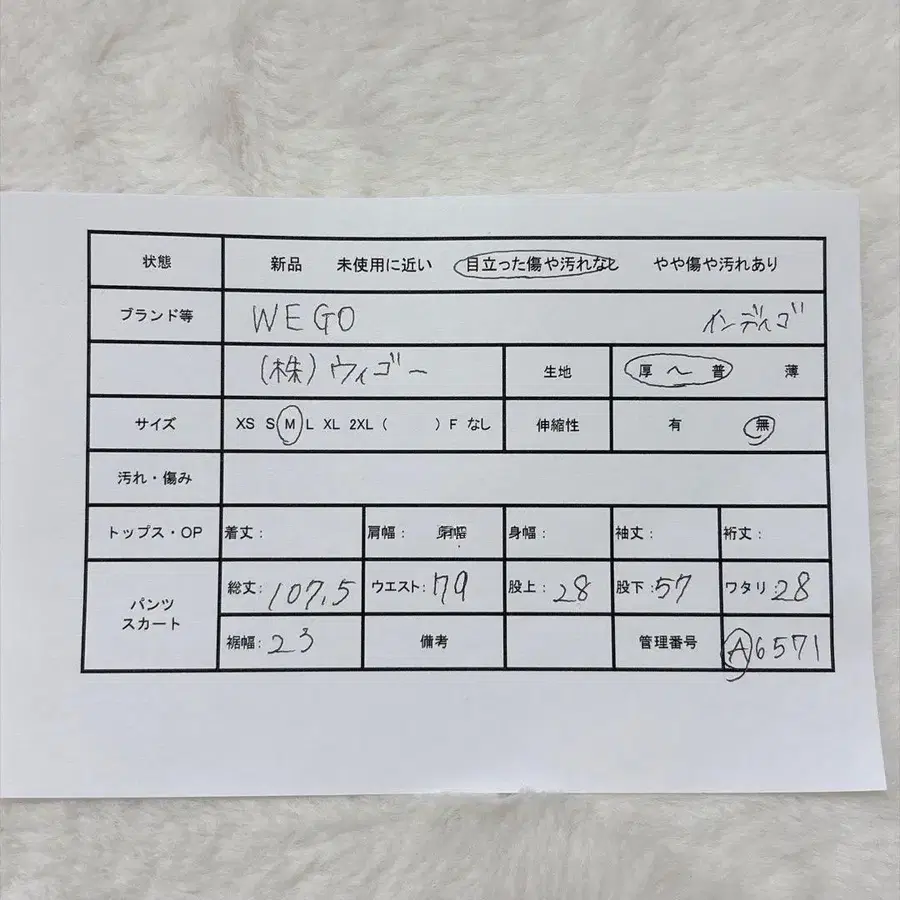 状態 新品 未使用に近い 目立った傷や汚れなし やや傷や汚れあり
ブランド等 WEGO インディゴ
(株)ウィゴー 生地 厚 〜 普 薄
サイズ XS S M L XL 2XL ( ) F なし 伸縮性 有 無
汚れ・傷み
トップス・OP 着丈: 肩幅: 身幅: 袖丈: 裄丈:
パンツ スカート 総丈: 107.5 ウエスト: 79 股上: 28 股下: 57 ワタリ: 28
裾幅: 23 備考 管理番号 A6571